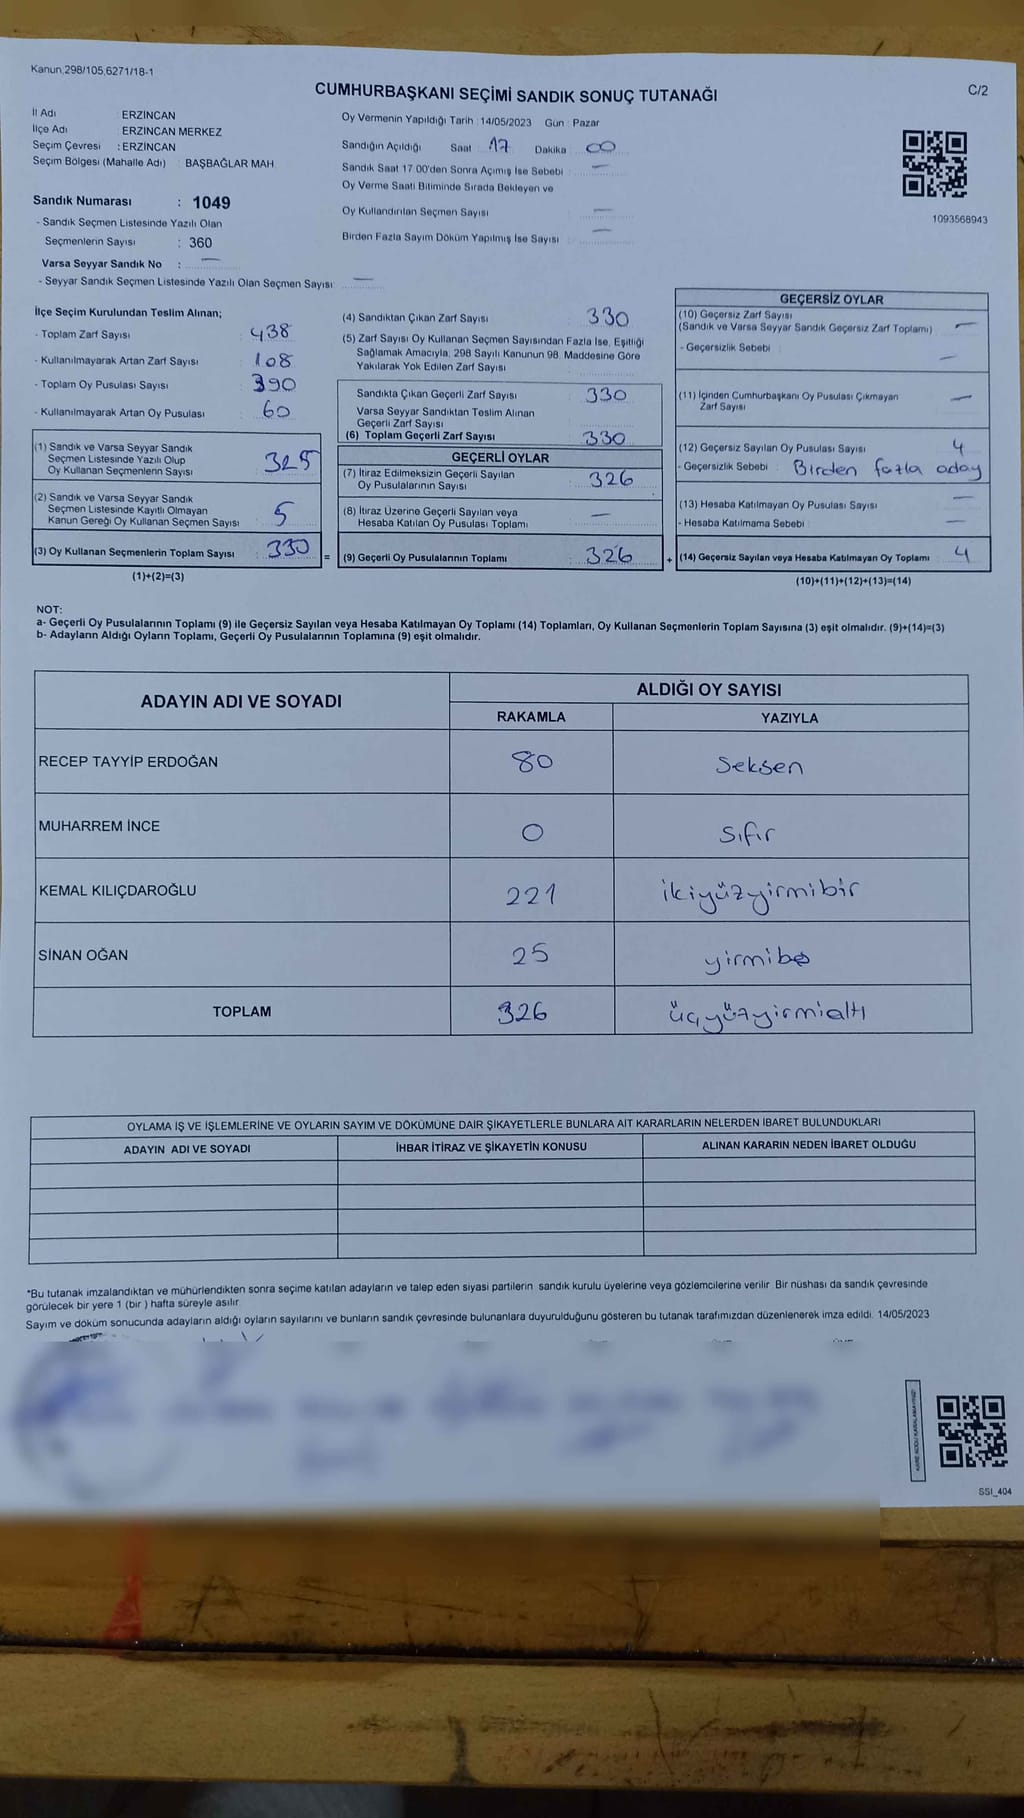 Kanun,298/105,6271/18-1
C/2
CUMHURBAŞKANI SEÇİMİ SANDIK SONUÇ TUTANAĞI
İl Adı : ERZİNCAN
İlçe Adı : ERZİNCAN MERKEZ
Seçim Çevresi : ERZİNCAN
Seçim Bölgesi (Mahalle Adı) : BAŞBAĞLAR MAH.
Sandık Numarası : 1049
- Sandık Seçmen Listesinde Yazılı Olan
Seçmenlerin Sayısı : 360
Varsa Seyyar Sandık No : —
- Seyyar Sandık Seçmen Listesinde Yazılı Olan Seçmen Sayısı: —
Oy Vermenin Yapıldığı Tarih : 14/05/2023 Gün : Pazar
Sandığın Açıldığı Saat 17 Dakika 00
Sandık Saat 17:00'den Sonra Açımış İse Sebebi : —
Oy Verme Saati Bitiminde Sırada Bekleyen ve
Oy Kullandırılan Seçmen Sayısı : —
Birden Fazla Sayım Döküm Yapılmış İse Sayısı : —
1093568943
İlçe Seçim Kurulundan Teslim Alınan;
- Toplam Zarf Sayısı : 438
- Kullanılmayarak Artan Zarf Sayısı : 108
- Toplam Oy Pusulası Sayısı : 390
- Kullanılmayarak Artan Oy Pusulası : 60
(1) Sandık ve Varsa Seyyar Sandık
Seçmen Listesinde Yazılı Olup
Oy Kullanan Seçmenlerin Sayısı : 325
(2) Sandık ve Varsa Seyyar Sandık
Seçmen Listesinde Kayıtlı Olmayan
Kanun Gereği Oy Kullanan Seçmen Sayısı : 5
(3) Oy Kullanan Seçmenlerin Toplam Sayısı : 330
(1)+(2)=(3)
=
(4) Sandıktan Çıkan Zarf Sayısı : 330
(5) Zarf Sayısı Oy Kullanan Seçmen Sayısından Fazla İse, Eşitliği
Sağlamak Amacıyla, 298 Sayılı Kanunun 98. Maddesine Göre
Yakılarak Yok Edilen Zarf Sayısı
Sandıkta Çıkan Geçerli Zarf Sayısı : 330
Varsa Seyyar Sandıktan Teslim Alınan
Geçerli Zarf Sayısı
(6) Toplam Geçerli Zarf Sayısı : 330
GEÇERLİ OYLAR
(7) İtiraz Edilmeksizin Geçerli Sayılan
Oy Pusulalarının Sayısı : 326
(8) İtiraz Üzerine Geçerli Sayılan veya
Hesaba Katılan Oy Pusulası Toplamı : —
(9) Geçerli Oy Pusulalarının Toplamı : 326
+
GEÇERSİZ OYLAR
(10) Geçersiz Zarf Sayısı
(Sandık ve Varsa Seyyar Sandık Geçersiz Zarf Toplamı) : —
- Geçersizlik Sebebi : —
(11) İçinden Cumhurbaşkanı Oy Pusulası Çıkmayan
Zarf Sayısı : —
(12) Geçersiz Sayılan Oy Pusulası Sayısı : 4
- Geçersizlik Sebebi : Birden fazla aday
(13) Hesaba Katılmayan Oy Pusulası Sayısı : —
- Hesaba Katılmama Sebebi : —
(14) Geçersiz Sayılan veya Hesaba Katılmayan Oy Toplamı : 4
(10)+(11)+(12)+(13)=(14)
NOT:
a- Geçerli Oy Pusulalarının Toplamı (9) ile Geçersiz Sayılan veya Hesaba Katılmayan Oy Toplamı (14) Toplamları, Oy Kullanan Seçmenlerin Toplam Sayısına (3) eşit olmalıdır. (9)+(14)=(3)
b- Adayların Aldığı Oyların Toplamı, Geçerli Oy Pusulalarının Toplamına (9) eşit olmalıdır.
ADAYIN ADI VE SOYADI
ALDIĞI OY SAYISI
RAKAMLA YAZIYLA
RECEP TAYYİP ERDOĞAN 80 Seksen
MUHARREM İNCE 0 Sıfır
KEMAL KILIÇDAROĞLU 221 ikiyüzyirmibir
SİNAN OĞAN 25 yirmibeş
TOPLAM 326 üçyüzyirmialtı
OYLAMA İŞ VE İŞLEMLERİNE VE OYLARIN SAYIM VE DÖKÜMÜNE DAİR ŞİKAYETLERLE BUNLARA AİT KARARLARIN NELERDEN İBARET BULUNDUKLARI
ADAYIN ADI VE SOYADI İHBAR İTİRAZ VE ŞİKAYETİN KONUSU ALINAN KARARIN NEDEN İBARET OLDUĞU
*Bu tutanak imzalandıktan ve mühürlendikten sonra seçime katılan adayların ve talep eden siyasi partilerin sandık kurulu üyelerine veya gözlemcilerine verilir. Bir nüshası da sandık çevresinde
görülecek bir yere 1 (bir ) hafta süreyle asılır.
Sayım ve döküm sonucunda adayların aldığı oyların sayılarını ve bunların sandık çevresinde bulunanlara duyurulduğunu gösteren bu tutanak tarafımızdan düzenlenerek imza edildi. 14/05/2023
SSI_404